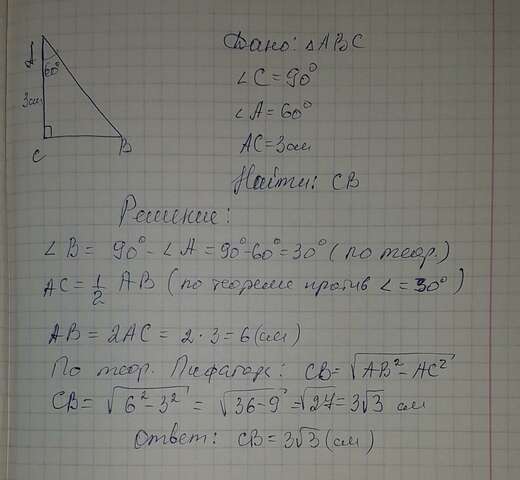 Дано: △ABC
∠C = 90°
∠A = 60°
AC = 3см
Найти: CB
A
60°
3см
C
B
Решение:
∠B = 90° - ∠A = 90°-60° = 30° (по теор.)
AC = 1/2 AB (по теореме против ∠ = 30°)
AB = 2AC = 2 · 3 = 6 (см)
По теор. Пифагора: CB = √AB² - AC²
CB = √6² - 3² = √36 - 9 = √27 = 3√3 см
Ответ: CB = 3√3 (см)